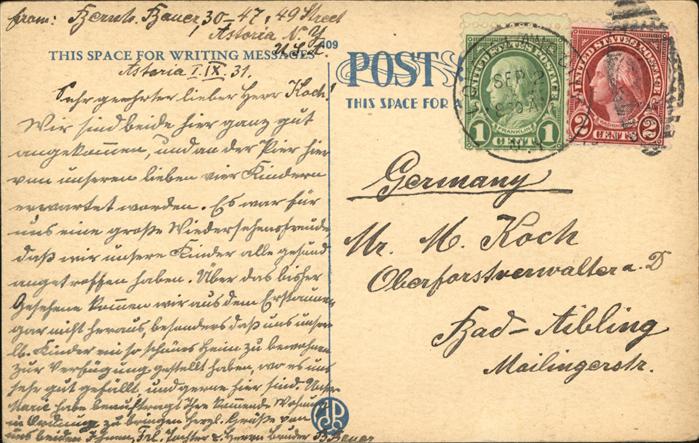 from: Bernh. Bauer, 30-47, 49 Street
Astoria N. Y.
U.S.A.
THIS SPACE FOR WRITING MESSAGES
409
Astoria 1.IX.31.
Sehr geehrter lieber Herr Koch!
Wir sind beide hier ganz gut
angekommen, und an der Pier hier
von unseren lieben vier Kindern
erwartet worden. Es war für
uns eine große Wiedersehensfreude
daß wir unsere Kinder alle gesund
angetroffen haben. Über das bisher
Gesehene kommen wir aus dem Erstaunen
gar nicht heraus, besonders daß uns unsere
lb. Kinder ein so schönes Heim zu bewohnen
zur Verfügung gestellt haben, wo es uns
sehr gut gefällt, und gerne hier sind. Unsere
Marie habe beauftragt Ihre Wohnung
in Ordnung zu bringen Herzl. Grüße von
uns beiden Ihnen, Frl. Tochter u. Herrn Bruder B. Bauer
POST
THIS SPACE FOR A
UNITED STATES POSTAGE
FRANKLIN
1 CENT 1
SEP 2
UNITED STATES POSTAGE
WASHINGTON
2 CENTS 2
Germany
Mr. M. Koch
Oberforstverwalter a. D
Bad-Aibling
Mailingerstr.